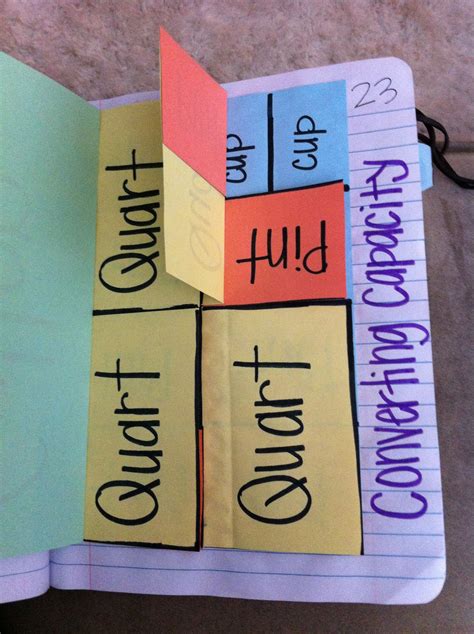 23
Converting Capacity
Quart
Quart
Quart
cup
cup
Pint